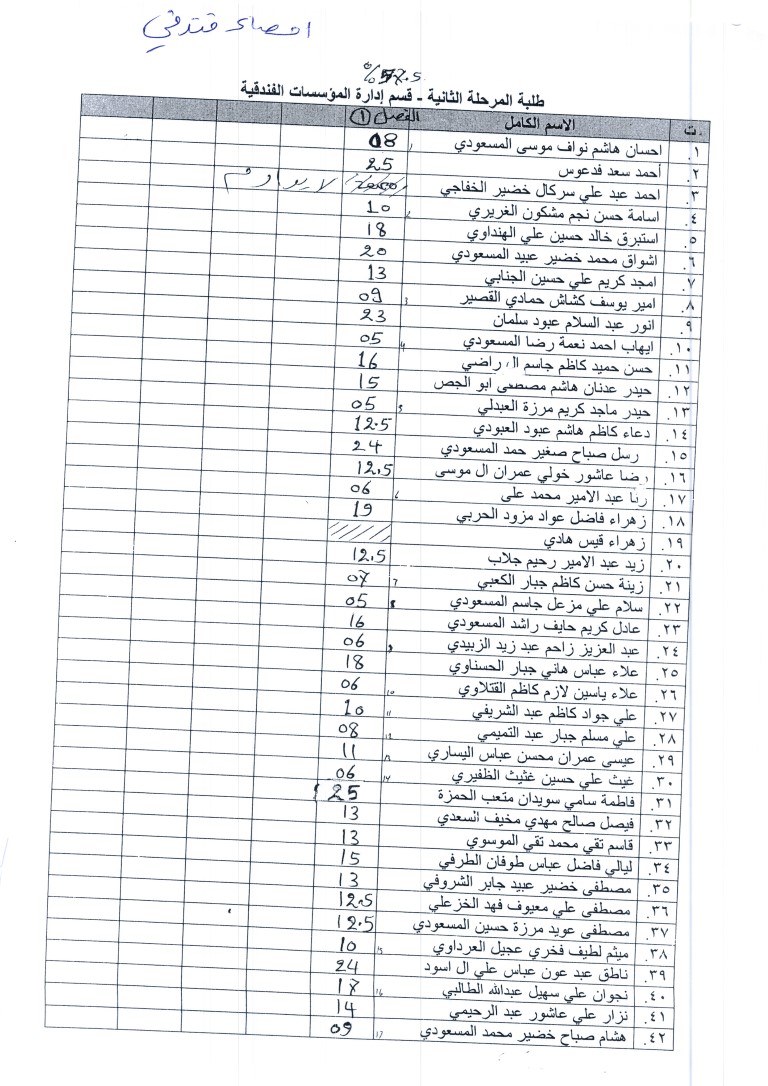 احصاء فندقي
%57.5
طلبة المرحلة الثانية - قسم إدارة المؤسسات الفندقية
ت. الاسم الكامل الفصل (١)
١. احسان هاشم نواف موسى المسعودي 08
٢. أحمد سعد فدعوس 25
٣. احمد عبد علي سركال خضير الخفاجي لا يداوم
٤. اسامة حسن نجم مشكون الغريري 10
٥. استبرق خالد حسين علي الهنداوي 18
٦. اشواق محمد خضير عبيد المسعودي 20
٧. امجد كريم علي حسين الجنابي 13
٨. امير يوسف كشاش حمادي القصير 09
٩. انور عبد السلام عبود سلمان 23
١٠. ايهاب احمد نعمة رضا المسعودي 05
١١. حسن حميد كاظم جاسم ال راضي 16
١٢. حيدر عدنان هاشم مصطفى ابو الجص 15
١٣. حيدر ماجد كريم مرزة العبدلي 05
١٤. دعاء كاظم هاشم عبود العبودي 12.5
١٥. رسل صباح صغير حمد المسعودي 24
١٦. رضا عاشور خولي عمران ال موسى 12.5
١٧. رنا عبد الامير محمد علي 06
١٨. زهراء فاضل عواد مزود الحربي 19
١٩. زهراء قيس هادي
٢٠. زيد عبد الامير رحيم جلاب 12.5
٢١. زينة حسن كاظم جبار الكعبي 07
٢٢. سلام علي مزعل جاسم المسعودي 05
٢٣. عادل كريم حايف راشد المسعودي 16
٢٤. عبد العزيز زاحم عبد زيد الزبيدي 06
٢٥. علاء عباس هاني جبار الحسناوي 18
٢٦. علاء ياسين لازم كاظم الفتلاوي 06
٢٧. علي جواد كاظم عبد الشريفي 10
٢٨. علي مسلم جبار عبد التميمي 08
٢٩. عيسى عمران محسن عباس اليساري 11
٣٠. غيث علي حسين غثيث الظفيري 06
٣١. فاطمة سامي سويدان متعب الحمزة 25
٣٢. فيصل صالح مهدي مخيف السعدي 13
٣٣. قاسم تقي محمد تقي الموسوي 13
٣٤. ليالي فاضل عباس طوفان الطرفي 15
٣٥. مصطفى خضير عبيد جابر الشروفي 13
٣٦. مصطفى علي معيوف فهد الخزعلي 12.5
٣٧. مصطفى عويد مرزة حسين المسعودي 12.5
٣٨. ميثم لطيف فخري عجيل العرداوي 10
٣٩. ناطق عبد عون عباس علي ال اسود 24
٤٠. نجوان علي سهيل عبدالله الطالبي
٤١. نزار علي عاشور عبد الرحيمي 14
٤٢. هشام صباح خضير محمد المسعودي 09